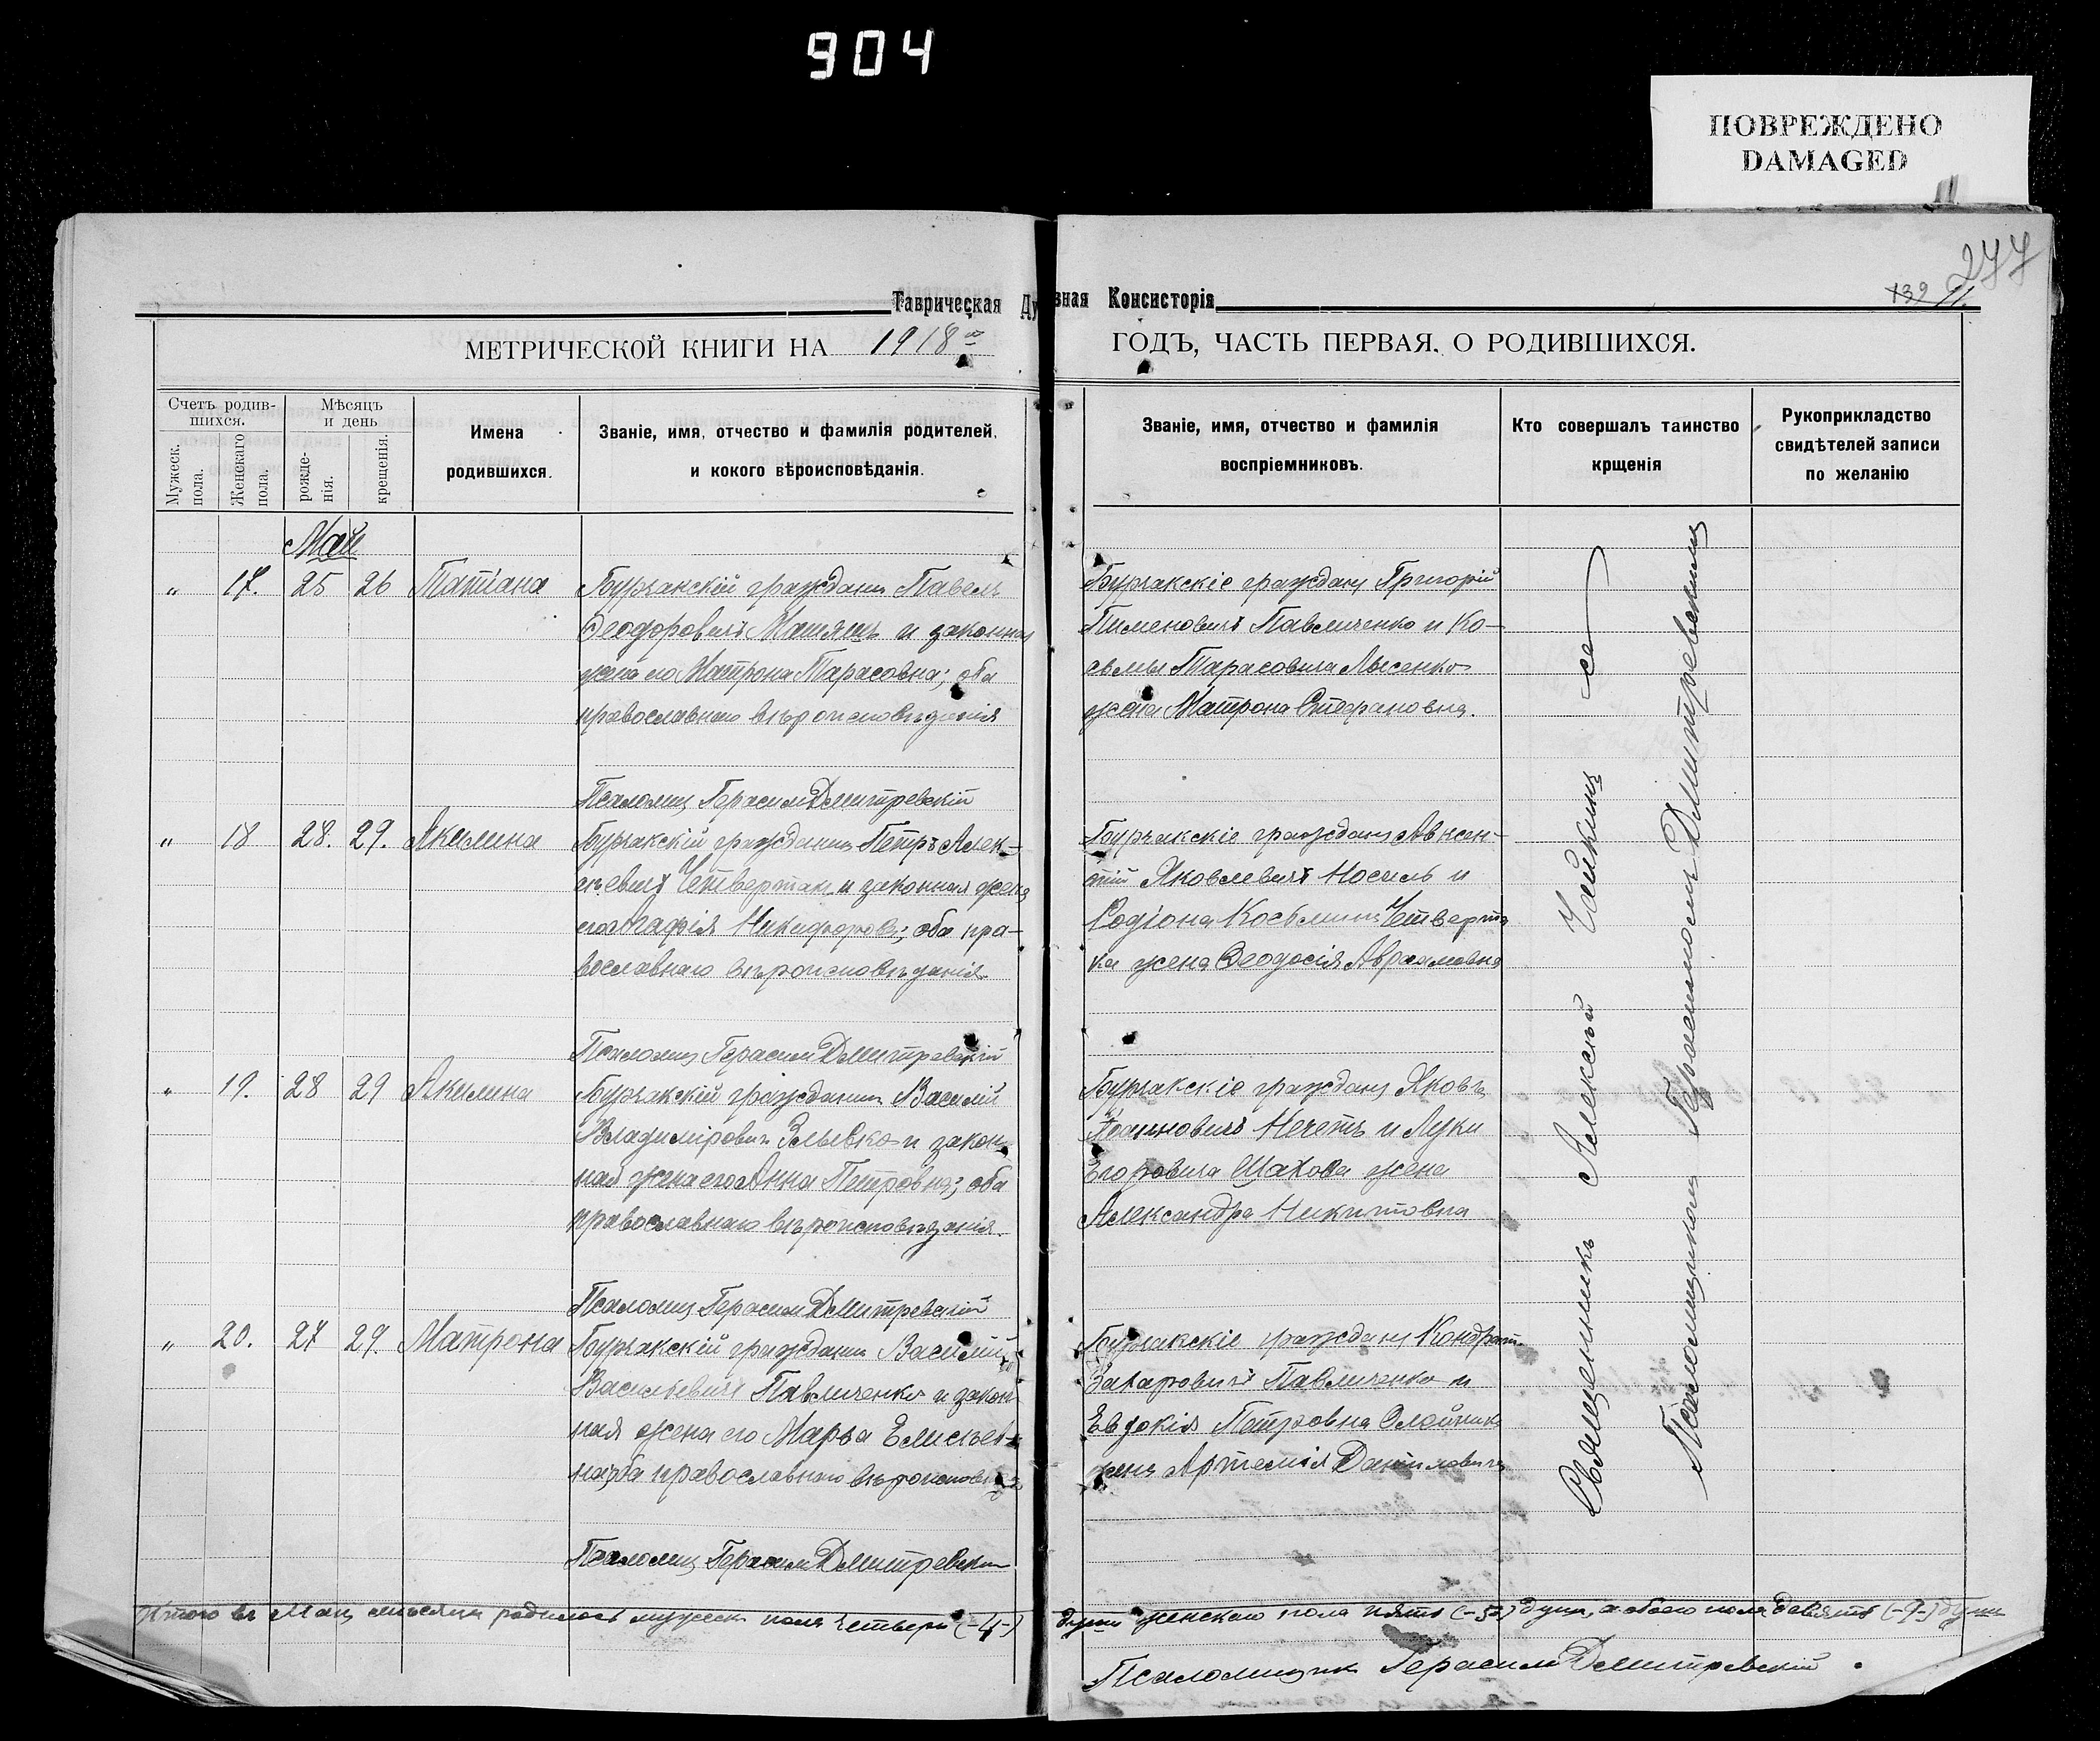 904
ПОВРЕЖДЕНО
DAMAGED
277
139
Таврическая Ду вная Консисторія
МЕТРИЧЕСКОЙ КНИГИ НА 1918 ГОДЪ, ЧАСТЬ ПЕРВАЯ. О РОДИВШИХСЯ.
Счетъ родив-
шихся.
Мужеск.
пола.
Женскаго
пола.
Мѣсяцъ
и день
рожде-
нія.
крещенія.
Имена
родившихся.
Званіе, имя, отчество и фамилія родителей,
и кокого вѣроисповѣданія.
Званіе, имя, отчество и фамилія
воспріемниковъ.
Кто совершалъ таинство
крщенія
Рукоприкладство
свидѣтелей записи
по желанію
Май
" 17. 25 26 Татіана
гражданинъ Павелъ
Ѳеодоровичъ и законная
жена его Матрона Тарасовна; оба
православнаго вѣроисповѣданія
Бурчакскіе граждане Григорій
Пименовичъ Павличенко и Ко-
сьмы Тарасовича Лысенко
жена Матрона Стефановна.
Псаломщ Герасимъ Дмитревскій
" 18 28. 29. Акилина
Бурчакскій гражданинъ Петръ Алек-
сѣевичъ Четвертак и законная жена
его Агафія Никифоров; оба пра-
вославнаго вѣроисповѣданія.
Бурчакскіе граждане Авксен-
тій Яковлевичъ Носиль и
Родіона Косьмина Четверта
ка жена Ѳеодосія Авраамовна
Псаломщ Герасимъ Дмитревскій
" 19. 28 29 Акилина
Бурчакскій гражданинъ Василій
Владиміровичъ и закон-
ная жена его Анна Петровна; оба
православнаго вѣроисповѣданія.
Бурчакскіе граждане Яковъ
Іоанновичъ Нечетъ и Луки
Егоровича жена
Александра Никитовна
Псаломщ Герасимъ Дмитревскій
" 20. 27 29. Матрона
Бурчакскій гражданинъ Василій
Васильевичъ Павличенко и закон-
ная жена его Марѳа Елисѣев-
на; оба православнаго
Бурчакскіе граждане Кондрат
Захаровичъ Павличенко и
Евдокія Петровна Олейника
жена Артемія Даниловича
Псаломщ Герасимъ Дмитревскій
Священникъ Алексѣй се
Псаломщикомъ Герасимомъ Дмитревскимъ
Итого въ Маѣ мѣсяцѣ родилось мужеск пола четверо (-4-) душ женскаго пола пять (-5-) душ, а обоего пола девять (-9-) душъ
Псаломщикъ Герасимъ Дмитревскій